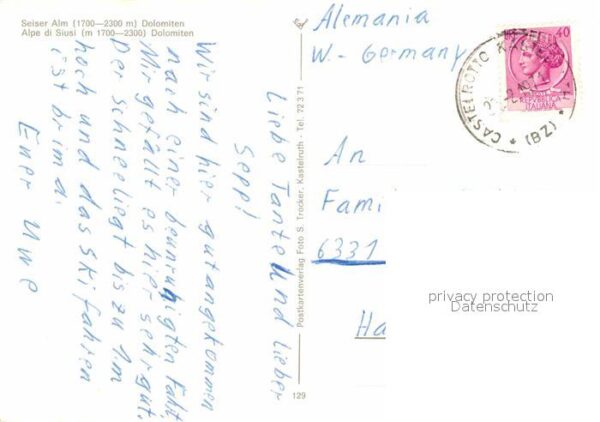 Seiser Alm (1700—2300 m) Dolomiten
Alpe di Siusi (m 1700—2300) Dolomiten
Liebe Tante und lieber
Sepp!
Wir sind hier gut angekommen
nach einer beunruhigten Fahrt.
Mir gefällt es hier sehr gut.
Der schnee liegt bis zu 1.m
hoch und das Skifahren
ist brima.
Euer Uwe
Postkartenverlag Foto S. Trocker, Kastelruth - Tel. 72371
129
Alemania
W.- Germany
40
REPVBBLICA
ITALIANA
CASTELROTTO KASTELRUTH
* (BZ) *
An
Fami
6331
Ha
privacy protection
Datenschutz